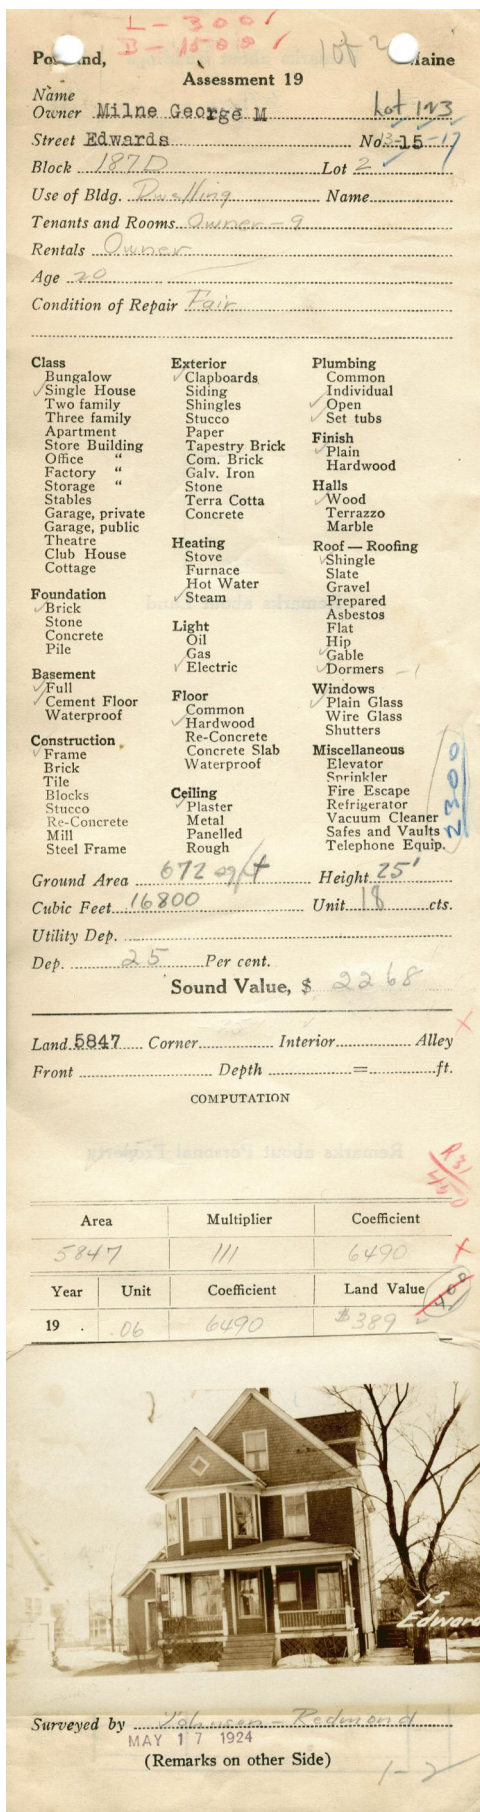 L - 300 ✓
B - 1500 ✓
lot 2
Maine
Assessment 19
Name
Owner Milne George M Lot 123
Street Edwards No. 13-15-17
Block 187D Lot 2 ✓
Use of Bldg. Dwelling Name
Tenants and Rooms Owner-9
Rentals Owner
Age 20
Condition of Repair Fair
Class
Bungalow
✓ Single House
Two family
Three family
Apartment
Store Building
Office "
Factory "
Storage "
Stables
Garage, private
Garage, public
Theatre
Club House
Cottage
Foundation
✓ Brick
Stone
Concrete
Pile
Basement
✓ Full
✓ Cement Floor
Waterproof
Construction
✓ Frame
Brick
Tile
Blocks
Stucco
Re-Concrete
Mill
Steel Frame
Exterior
✓ Clapboards
Siding
Shingles
Stucco
Paper
Tapestry Brick
Com. Brick
Galv. Iron
Stone
Terra Cotta
Concrete
Heating
Stove
Furnace
Hot Water
✓ Steam
Light
Oil
✓ Gas
✓ Electric
Floor
Common
✓ Hardwood
Re-Concrete
Concrete Slab
Waterproof
Ceiling
✓ Plaster
Metal
Panelled
Rough
Plumbing
Common
✓ Individual
✓ Open
✓ Set tubs
Finish
✓ Plain
Hardwood
Halls
✓ Wood
Terrazzo
Marble
Roof — Roofing
✓ Shingle
Slate
Gravel
Prepared
Asbestos
Flat
Hip
✓ Gable
✓ Dormers - 1
Windows
✓ Plain Glass
Wire Glass
Shutters
Miscellaneous
Elevator
Sprinkler
Fire Escape
Refrigerator
Vacuum Cleaner
Safes and Vaults
Telephone Equip.
2300
Ground Area 672 sq ft Height 25'
Cubic Feet 16800 Unit 18 cts.
Utility Dep.
Dep. 25 Per cent.
Sound Value, $ 2268
Land 5847 Corner Interior Alley
Front Depth = ft.
COMPUTATION
R31
450
Area Multiplier Coefficient
5847 111 6490
Year Unit Coefficient Land Value
19 . .06 6490 $389
15
Edward
Surveyed by Johnson - Redmond
MAY 17 1924
(Remarks on other Side)
1-2